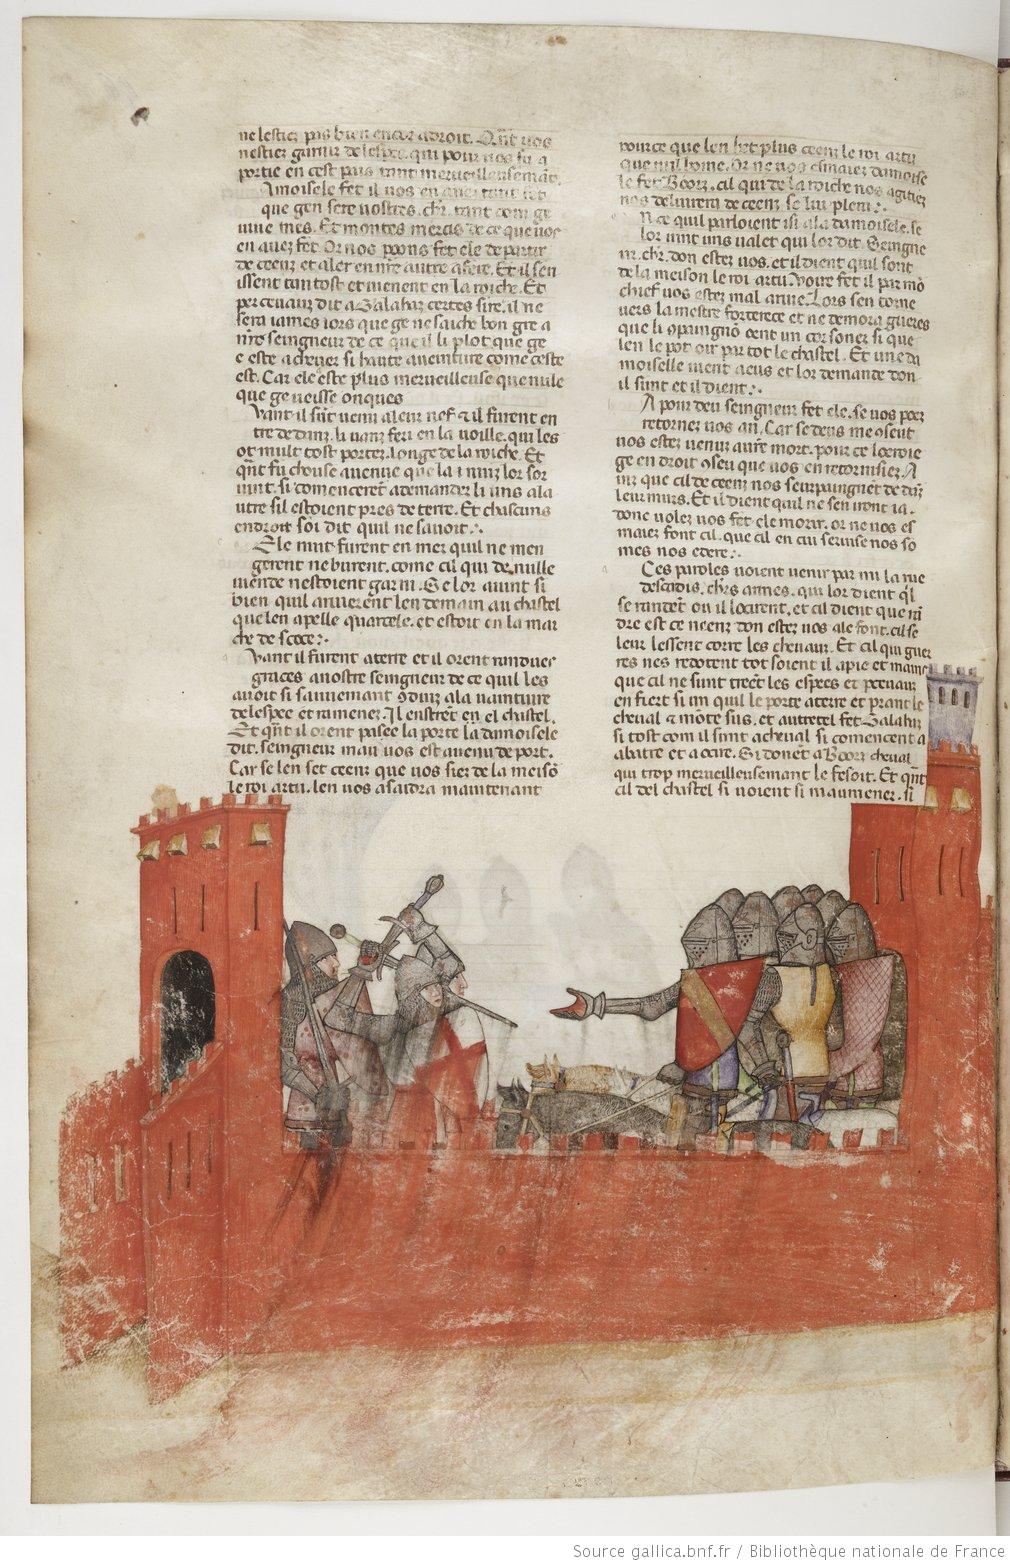 ne lestiez pas bien encor adroit. Qnt uos
nestiez garnie de lespee. qui por uos fu a
portee en cest pais tant merueilleusemant.
Amoisele fet il uos en auez tant fet
que gen sere uostres. chr. tant com ge
uiue mes. Et montes mercis de ce que uos
en auez fet. Or nos poons fet ele de partir
de ceenz et aler en nre autre afere. Et il sen
issent tantost et uienent en la roiche. Et
perceuaux dit a Galahaz certes sire. il ne
sera iames iors que ge ne saiche bon gre a
nre seingneur de ce que il li plot que ge
e este a cheuer si haute auenture come ceste
est. Car ele este plus merueilleuse que nule
que ge ueisse onques
Vant il sunt uenu a leur nef & il furent en
tre dedanz. li uanz feri en la uoille. qui les
ot mult tost portez. longe de la roiche. Et
qnt fu chouse auenue que la i nuiz lor sor
uint. si comencerent a demander li uns a la
utre sil estoient pres de terre. Et chascuns
endroit soi dit quil ne sauoit.
Ele nuit furent en mer quil ne men
gerent ne burent. come cil qui de nulle
uiende nestoient garni. Se lor auint si
bien quil ariuerent lendemain au chastel
que len apelle quartele. et estoit en la mar
che de scoce.
Vant il furent a terre et il orent randues
graces a nostre seingneur de ce quil les
auoit si sauuemant conduiz a la uainture
de lespee et ramenez. Il enstret en el chastel.
Et qnt il orent pasee la porte la damoisele
dit. seingneur mau uos est auenu de port.
Car se len set ceenz que uos siez de la meison
le roi artu. len uos asaudra maintenant
pource que len het plus ceenz le roi artu
que nul home. Or ne uos esmaiez damoise
le fet Boorz. cil qui de la roiche nos agitiez
nos deliurera de ceenz se lui plera.
N ce quil parloient isi a la damoisele. se
lor uint uns uallet qui lor dit. Seingne
ur. chr. don estez uos. et il dient quil sont
de la meison le roi artu. Voire fet il par mon
chief uos estez mal ariue. Lors sen torne
uers la mestre forterece et ne demora gueres
que li compaingnon oent un cor soner si que
len le pot oir par tot le chastel. Et une da
moiselle uient a eus et lor demande don
il sunt et il dient.
A por deu seingneur fet ele. se uos poez
retornez uos an. Car se deus me conseut
uos estez uenuz a uostre mort. pour ce loeroie
ge en droit conseu que uos en retornisiez. A
inz que cil de ceenz nos seurpaingnet dedanz
leur murs. Et il dient quil ne sen iront ia.
Donc uolez uos fet ele morir. or ne uos es
maiez font cil. que cil en cui seruise nos so
mes nos edera.
Ces paroles uoient uenir par mi la rue
des ca dis. chrs armes. qui lor dient quil
se randent ou il locirent. et cil dient que randre
dre est ce neenz don estez uos a le font. cil se
leur lessent corre les cheuaux. Et cil qui gue
res nes redotent tot soient il a pie et mainz
que cil ne sunt treet les espees et perceuaux
en fiert si un quil le porte a terre et prant le
cheual & monte sus. et autretel fet Galahaz
si tost com il sunt a cheual si comencent a
abatre et a ocire. Si donent a Boorz cheual
qui trop merueilleusemant le fesoit. Et qnt
cil del chastel si uoient si maumener. si
Source gallica.bnf.fr / Bibliothèque nationale de France